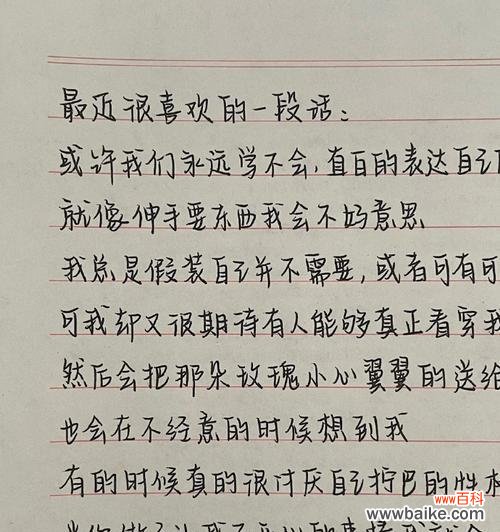 最近很喜欢的一段话：
或许我们永远学不会，直白的表达自己
就像伸手要东西我会不好意思
我总是假装自己并不需要，或者可有可
可我却又很期待有人能够真正看穿我
然后会把那朵玫瑰小心翼翼的送给
也会在不经意的时候想到我
有的时候真的很讨厌自己拧巴的性格
www百科
wwwbaike.com